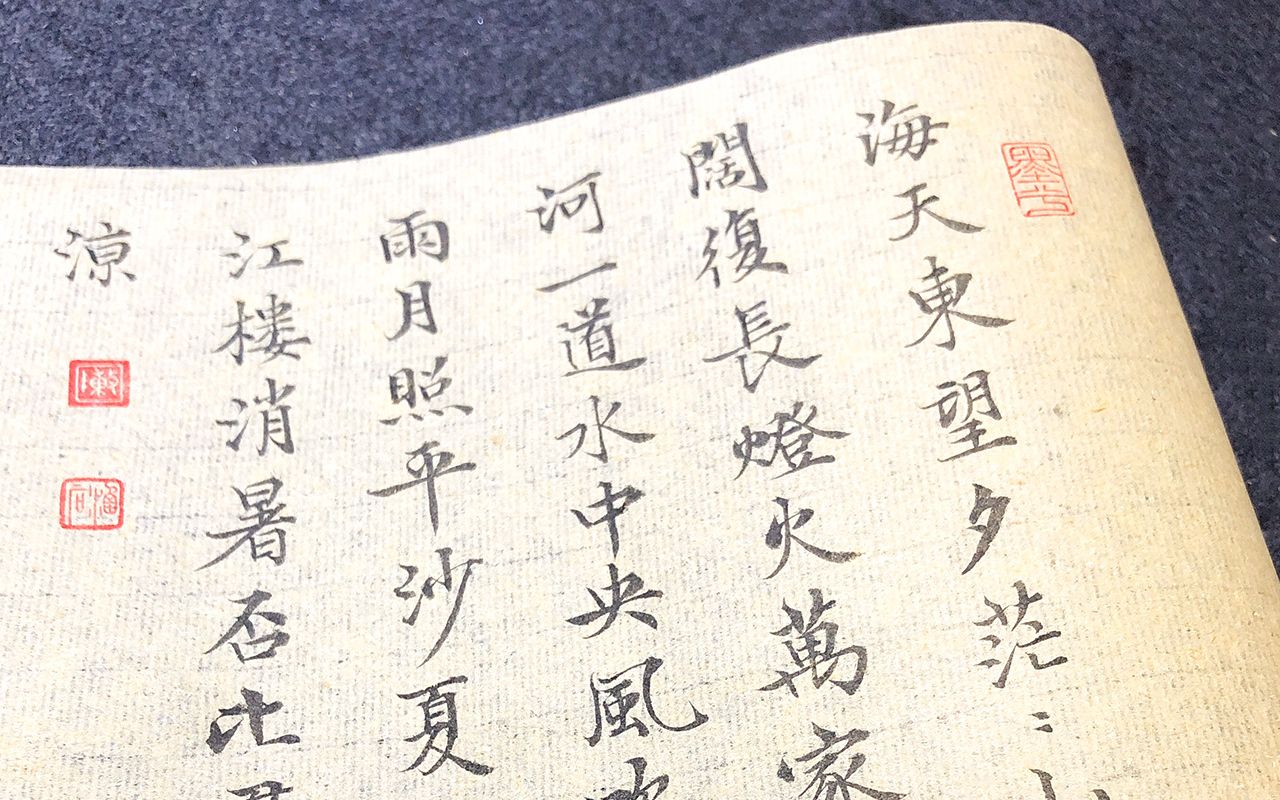 海天東望夕茫〻
闊復長燈火萬家
河一道水中央風
雨月照平沙夏
江楼消暑否比
涼